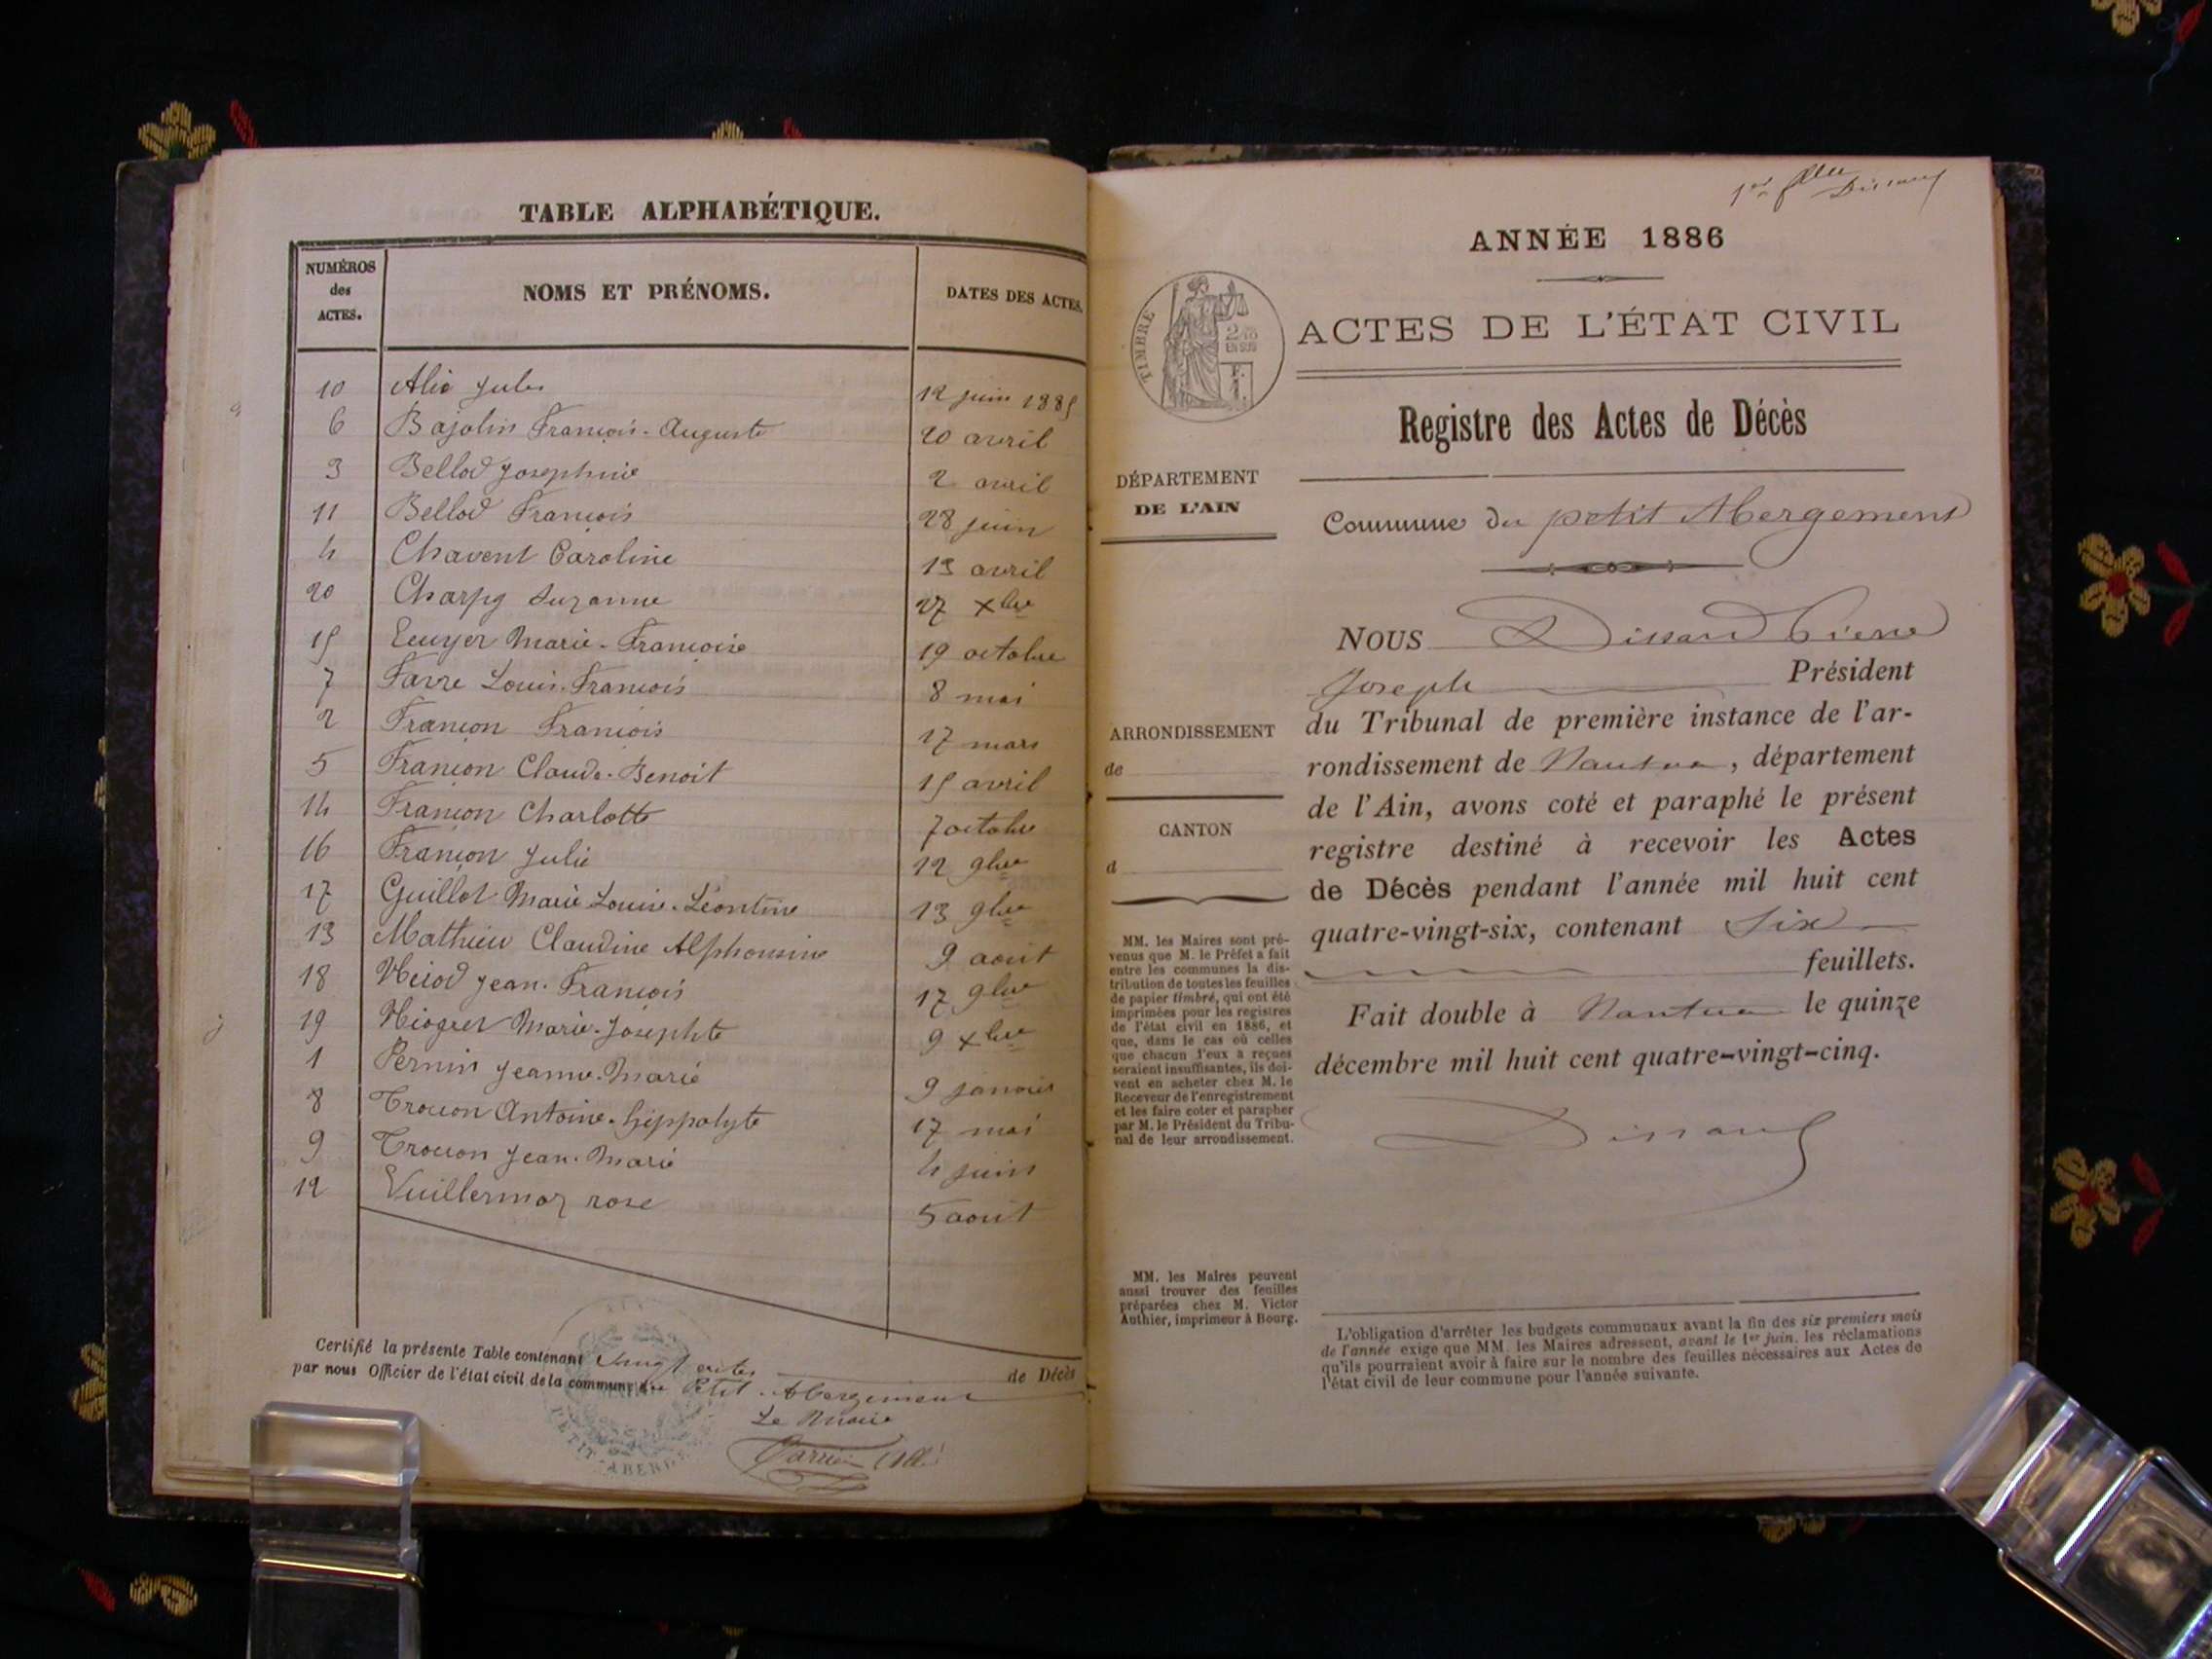 TABLE ALPHABÉTIQUE.
NUMÉROS des ACTES. NOMS ET PRÉNOMS. DATES DES ACTES.
10 Alie Jules 12 juin 1885
6 Bajolin François-Auguste 20 avril
3 Bellod Josephine 2 avril
11 Bellod François 28 juin
4 Chavent Caroline 13 avril
20 Charpy Suzanne 27 Xbre
15 Ecuyer Marie-Françoise 19 octobre
7 Favre Louis-François 8 mai
2 Françon François 17 mars
5 Françon Claude-Benoit 15 avril
14 Françon Charlotte 7 octobre
16 Françon Julie 12 9bre
17 Guillot Marie Louise-Léontine 13 9bre
13 Mathieu Claudine Alphonsine 9 août
18 Jean-François 17 9bre
19 Marie-Josephte 9 Xbre
1 Pernin Jeanne-Marie 9 janvier
8 Antoine-hippolyte 17 mai
9 Jean-Marie 4 juin
12 Vuillermoz rose 5 août
Certifié la présente Table contenant vingt actes de Décès
par nous Officier de l'état civil de la commune du Petit-Abergement
Le Maire
PETIT-ABERGE
ANNÉE 1886
TIMBRE
2/10 EN SUS
ACTES DE L'ÉTAT CIVIL
Registre des Actes de Décès
DÉPARTEMENT
DE L'AIN
Commune du petit Abergement
NOUS Dissard Pierre
Joseph Président
du Tribunal de première instance de l'ar-
rondissement de Nantua, département
de l'Ain, avons coté et paraphé le présent
registre destiné à recevoir les Actes
de Décès pendant l'année mil huit cent
quatre-vingt-six, contenant six
feuillets.
Fait double à Nantua le quinze
décembre mil huit cent quatre-vingt-cinq.
Dissard
ARRONDISSEMENT
de
CANTON
d
MM. les Maires sont pré-
venus que M. le Préfet a fait
entre les communes la dis-
tribution de toutes les feuilles
de papier timbré, qui ont été
imprimées pour les registres
de l'état civil en 1886, et
que, dans le cas où celles
que chacun d'eux a reçues
seraient insuffisantes, ils doi-
vent en acheter chez M. le
Receveur de l'enregistrement
et les faire coter et parapher
par M. le Président du Tribu-
nal de leur arrondissement.
MM. les Maires peuvent
aussi trouver des feuilles
préparées chez M. Victor
Authier, imprimeur à Bourg.
L'obligation d'arrêter les budgets communaux avant la fin des six premiers mois
de l'année exige que MM. les Maires adressent, avant le 1er juin, les réclamations
qu'ils pourraient avoir à faire sur le nombre des feuilles nécessaires aux Actes de
l'état civil de leur commune pour l'année suivante.